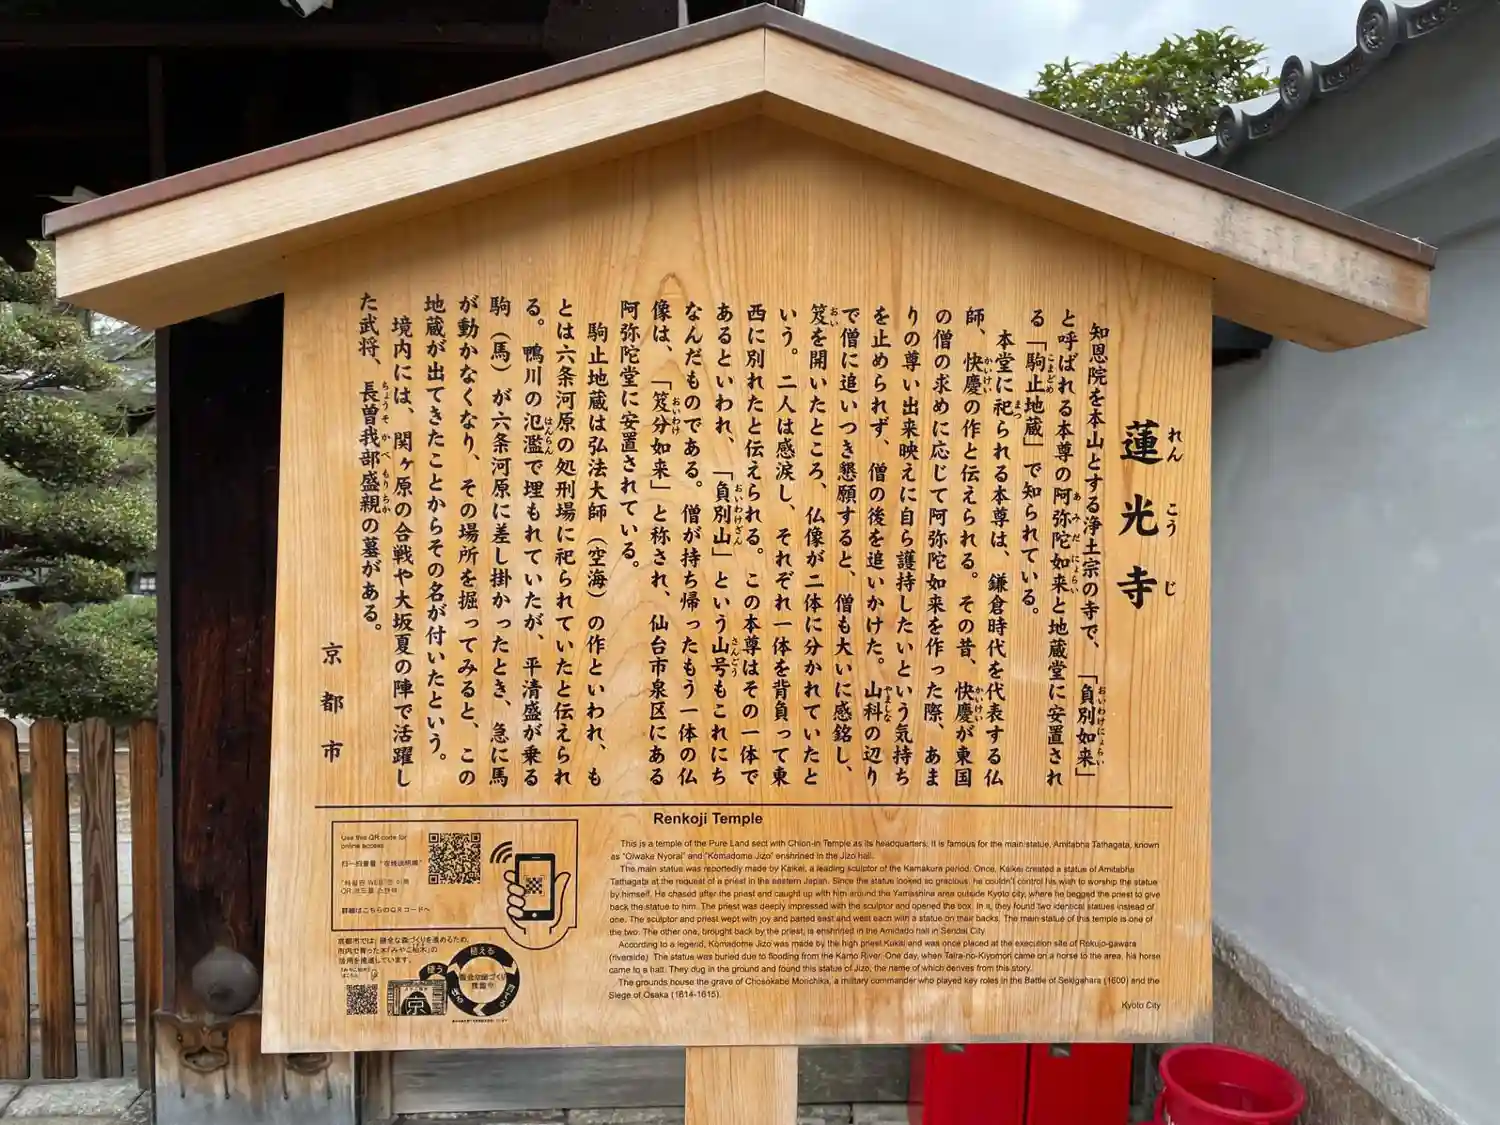 蓮光寺
れんこうじ
知恩院を本山とする浄土宗の寺で、「負別如来」
おいわけにょらい
と呼ばれる本尊の阿弥陀如来と地蔵堂に安置され
あみだにょらい
る「駒止地蔵」で知られている。
こまどめ
本堂に祀られる本尊は、鎌倉時代を代表する仏
まつ
師、快慶の作と伝えられる。その昔、快慶が東国
かいけい
かいけい
の僧の求めに応じて阿弥陀如来を作った際、あま
りの尊い出来映えに自ら護持したいという気持ち
を止められず、僧の後を追いかけた。山科の辺り
やましな
で僧に追いつき懇願すると、僧も大いに感銘し、
笈を開いたところ、仏像が二体に分かれていたと
おい
いう。二人は感涙し、それぞれ一体を背負って東
西に別れたと伝えられる。この本尊はその一体で
あるといわれ、「負別山」という山号もこれにち
おいわけざん
さんごう
なんだものである。僧が持ち帰ったもう一体の仏
像は、「笈分如来」と称され、仙台市泉区にある
おいわけ
阿弥陀堂に安置されている。
駒止地蔵は弘法大師（空海）の作といわれ、も
とは六条河原の処刑場に祀られていたと伝えられ
る。鴨川の氾濫で埋もれていたが、平清盛が乗る
はんらん
駒（馬）が六条河原に差し掛かったとき、急に馬
が動かなくなり、その場所を掘ってみると、この
地蔵が出てきたことからその名が付いたという。
境内には、関ヶ原の合戦や大坂夏の陣で活躍し
た武将、長曽我部盛親の墓がある。
ちょうそかべもりちか
京都市
Renkoji Temple
This is a temple of the Pure Land sect with Chion-in Temple as its headquarters. It is famous for the main statue, Amitabha Tathagata, known
as "Oiwake Nyorai" and "Komadome Jizo" enshrined in the Jizo hall.
The main statue was reportedly made by Kaikei, a leading sculptor of the Kamakura period. Once, Kaikei created a statue of Amitabha
Tathagata at the request of a priest in the eastern Japan. Since the statue looked so gracious, he couldn't control his wish to worship the statue
by himself. He chased after the priest and caught up with him around the Yamashina area outside Kyoto city, where he begged the priest to give
back the statue to him. The priest was deeply impressed with the sculptor and opened the box. In it, they found two identical statues instead of
one. The sculptor and priest wept with joy and parted east and west each with a statue on their backs. The main statue of this temple is one of
the two. The other one, brought back by the priest, is enshrined in the Amidado hall in Sendai City.
According to a legend, Komadome Jizo was made by the high priest Kukai and was once placed at the execution site of Rokujo-gawara
(riverside). The statue was buried due to flooding from the Kamo River. One day, when Taira-no-Kiyomori came on a horse to the area, his horse
came to a halt. They dug in the ground and found this statue of Jizo, the name of which derives from this story.
The grounds house the grave of Chosokabe Morichika, a military commander who played key roles in the Battle of Sekigahara (1600) and the
Siege of Osaka (1614-1615).
Kyoto City
Use this QR code for
online access
扫一扫查看"在线说明牌"
詳細はこちらのQRコードへ
京都市では、健全な森づくりを進めるため、
市内で育った木「みやこ杣木」の
活用を推進しています。
「みやこ杣木」
はこちら
植える
育てる
使う
京